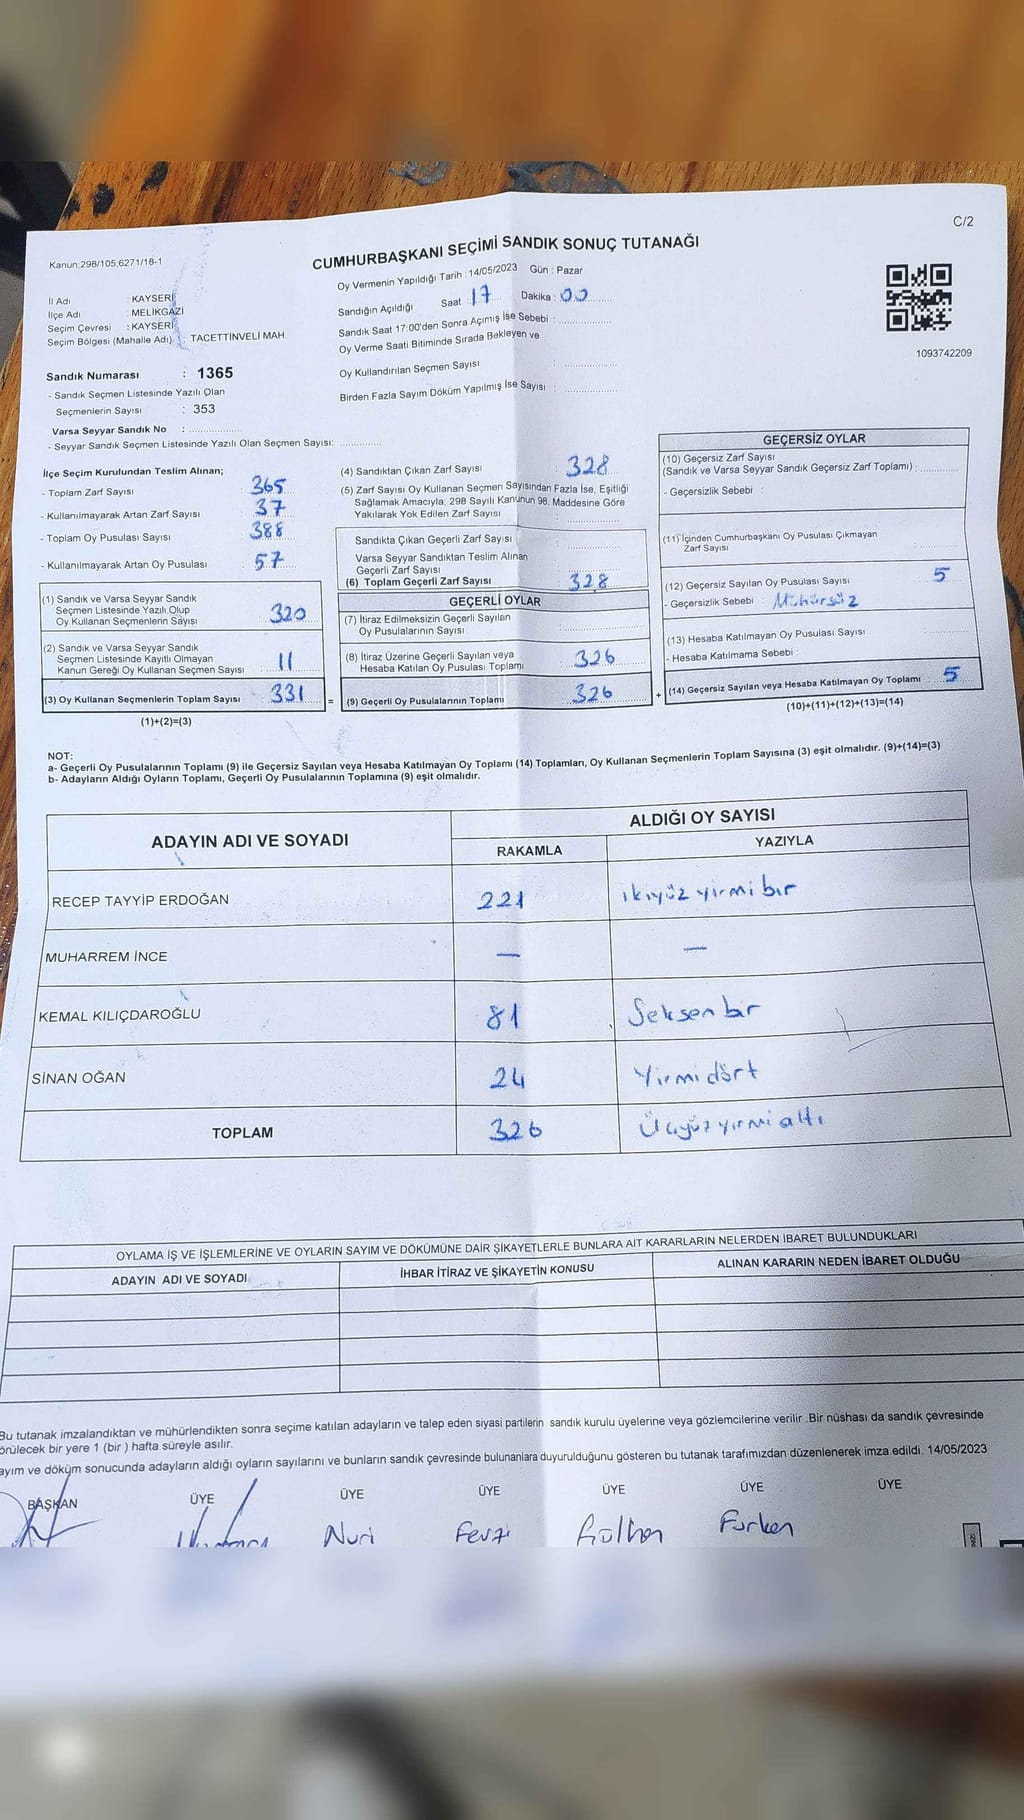 C/2
Kanun;298/105;6271/18-1
CUMHURBAŞKANI SEÇİMİ SANDIK SONUÇ TUTANAĞI
Oy Vermenin Yapıldığı Tarih : 14/05/2023 Gün : Pazar
İl Adı : KAYSERİ
İlçe Adı : MELİKGAZİ
Seçim Çevresi : KAYSERİ
Seçim Bölgesi (Mahalle Adı) : TACETTİNVELİ MAH.
Sandığın Açıldığı Saat : 17 Dakika : 00
Sandık Saat 17:00'den Sonra Açımış İse Sebebi :
Oy Verme Saati Bitiminde Sırada Bekleyen ve
Oy Kullandırılan Seçmen Sayısı :
Birden Fazla Sayım Döküm Yapılmış İse Sayısı :
1093742209
Sandık Numarası : 1365
- Sandık Seçmen Listesinde Yazılı Olan
Seçmenlerin Sayısı : 353
Varsa Seyyar Sandık No :
- Seyyar Sandık Seçmen Listesinde Yazılı Olan Seçmen Sayısı:
İlçe Seçim Kurulundan Teslim Alınan;
- Toplam Zarf Sayısı : 365
- Kullanılmayarak Artan Zarf Sayısı : 37
- Toplam Oy Pusulası Sayısı : 388
- Kullanılmayarak Artan Oy Pusulası : 57
(1) Sandık ve Varsa Seyyar Sandık
Seçmen Listesinde Yazılı Olup
Oy Kullanan Seçmenlerin Sayısı : 320
(2) Sandık ve Varsa Seyyar Sandık
Seçmen Listesinde Kayıtlı Olmayan
Kanun Gereği Oy Kullanan Seçmen Sayısı : 11
(3) Oy Kullanan Seçmenlerin Toplam Sayısı : 331
(1)+(2)=(3)
=
(4) Sandıktan Çıkan Zarf Sayısı : 328
(5) Zarf Sayısı Oy Kullanan Seçmen Sayısından Fazla İse, Eşitliği
Sağlamak Amacıyla; 298 Sayılı Kanunun 98. Maddesine Göre
Yakılarak Yok Edilen Zarf Sayısı :
Sandıkta Çıkan Geçerli Zarf Sayısı :
Varsa Seyyar Sandıktan Teslim Alınan
Geçerli Zarf Sayısı :
(6) Toplam Geçerli Zarf Sayısı : 328
GEÇERLİ OYLAR
(7) İtiraz Edilmeksizin Geçerli Sayılan
Oy Pusulalarının Sayısı :
(8) İtiraz Üzerine Geçerli Sayılan veya
Hesaba Katılan Oy Pusulası Toplamı : 326
(9) Geçerli Oy Pusulalarının Toplamı : 326
+
GEÇERSİZ OYLAR
(10) Geçersiz Zarf Sayısı
(Sandık ve Varsa Seyyar Sandık Geçersiz Zarf Toplamı) :
- Geçersizlik Sebebi :
(11) İçinden Cumhurbaşkanı Oy Pusulası Çıkmayan
Zarf Sayısı :
(12) Geçersiz Sayılan Oy Pusulası Sayısı : 5
- Geçersizlik Sebebi : Mühürsüz
(13) Hesaba Katılmayan Oy Pusulası Sayısı :
- Hesaba Katılmama Sebebi :
(14) Geçersiz Sayılan veya Hesaba Katılmayan Oy Toplamı : 5
(10)+(11)+(12)+(13)=(14)
NOT:
a- Geçerli Oy Pusulalarının Toplamı (9) ile Geçersiz Sayılan veya Hesaba Katılmayan Oy Toplamı (14) Toplamları, Oy Kullanan Seçmenlerin Toplam Sayısına (3) eşit olmalıdır. (9)+(14)=(3)
b- Adayların Aldığı Oyların Toplamı, Geçerli Oy Pusulalarının Toplamına (9) eşit olmalıdır.
ADAYIN ADI VE SOYADI ALDIĞI OY SAYISI
RAKAMLA YAZIYLA
RECEP TAYYİP ERDOĞAN 221 ikiyüz yirmi bir
MUHARREM İNCE — —
KEMAL KILIÇDAROĞLU 81 Seksen bir
SİNAN OĞAN 24 Yirmi dört
TOPLAM 326 Üçyüz yirmi altı
OYLAMA İŞ VE İŞLEMLERİNE VE OYLARIN SAYIM VE DÖKÜMÜNE DAİR ŞİKAYETLERLE BUNLARA AİT KARARLARIN NELERDEN İBARET BULUNDUKLARI
ADAYIN ADI VE SOYADI İHBAR İTİRAZ VE ŞİKAYETİN KONUSU ALINAN KARARIN NEDEN İBARET OLDUĞU
Bu tutanak imzalandıktan ve mühürlendikten sonra seçime katılan adayların ve talep eden siyasi partilerin sandık kurulu üyelerine veya gözlemcilerine verilir .Bir nüshası da sandık çevresinde
örülecek bir yere 1 (bir ) hafta süreyle asılır.
ayım ve döküm sonucunda adayların aldığı oyların sayılarını ve bunların sandık çevresinde bulunanlara duyurulduğunu gösteren bu tutanak tarafımızdan düzenlenerek imza edildi. 14/05/2023
BAŞKAN ÜYE ÜYE ÜYE ÜYE ÜYE ÜYE
Nuri Fevzi Gülhan Furkan